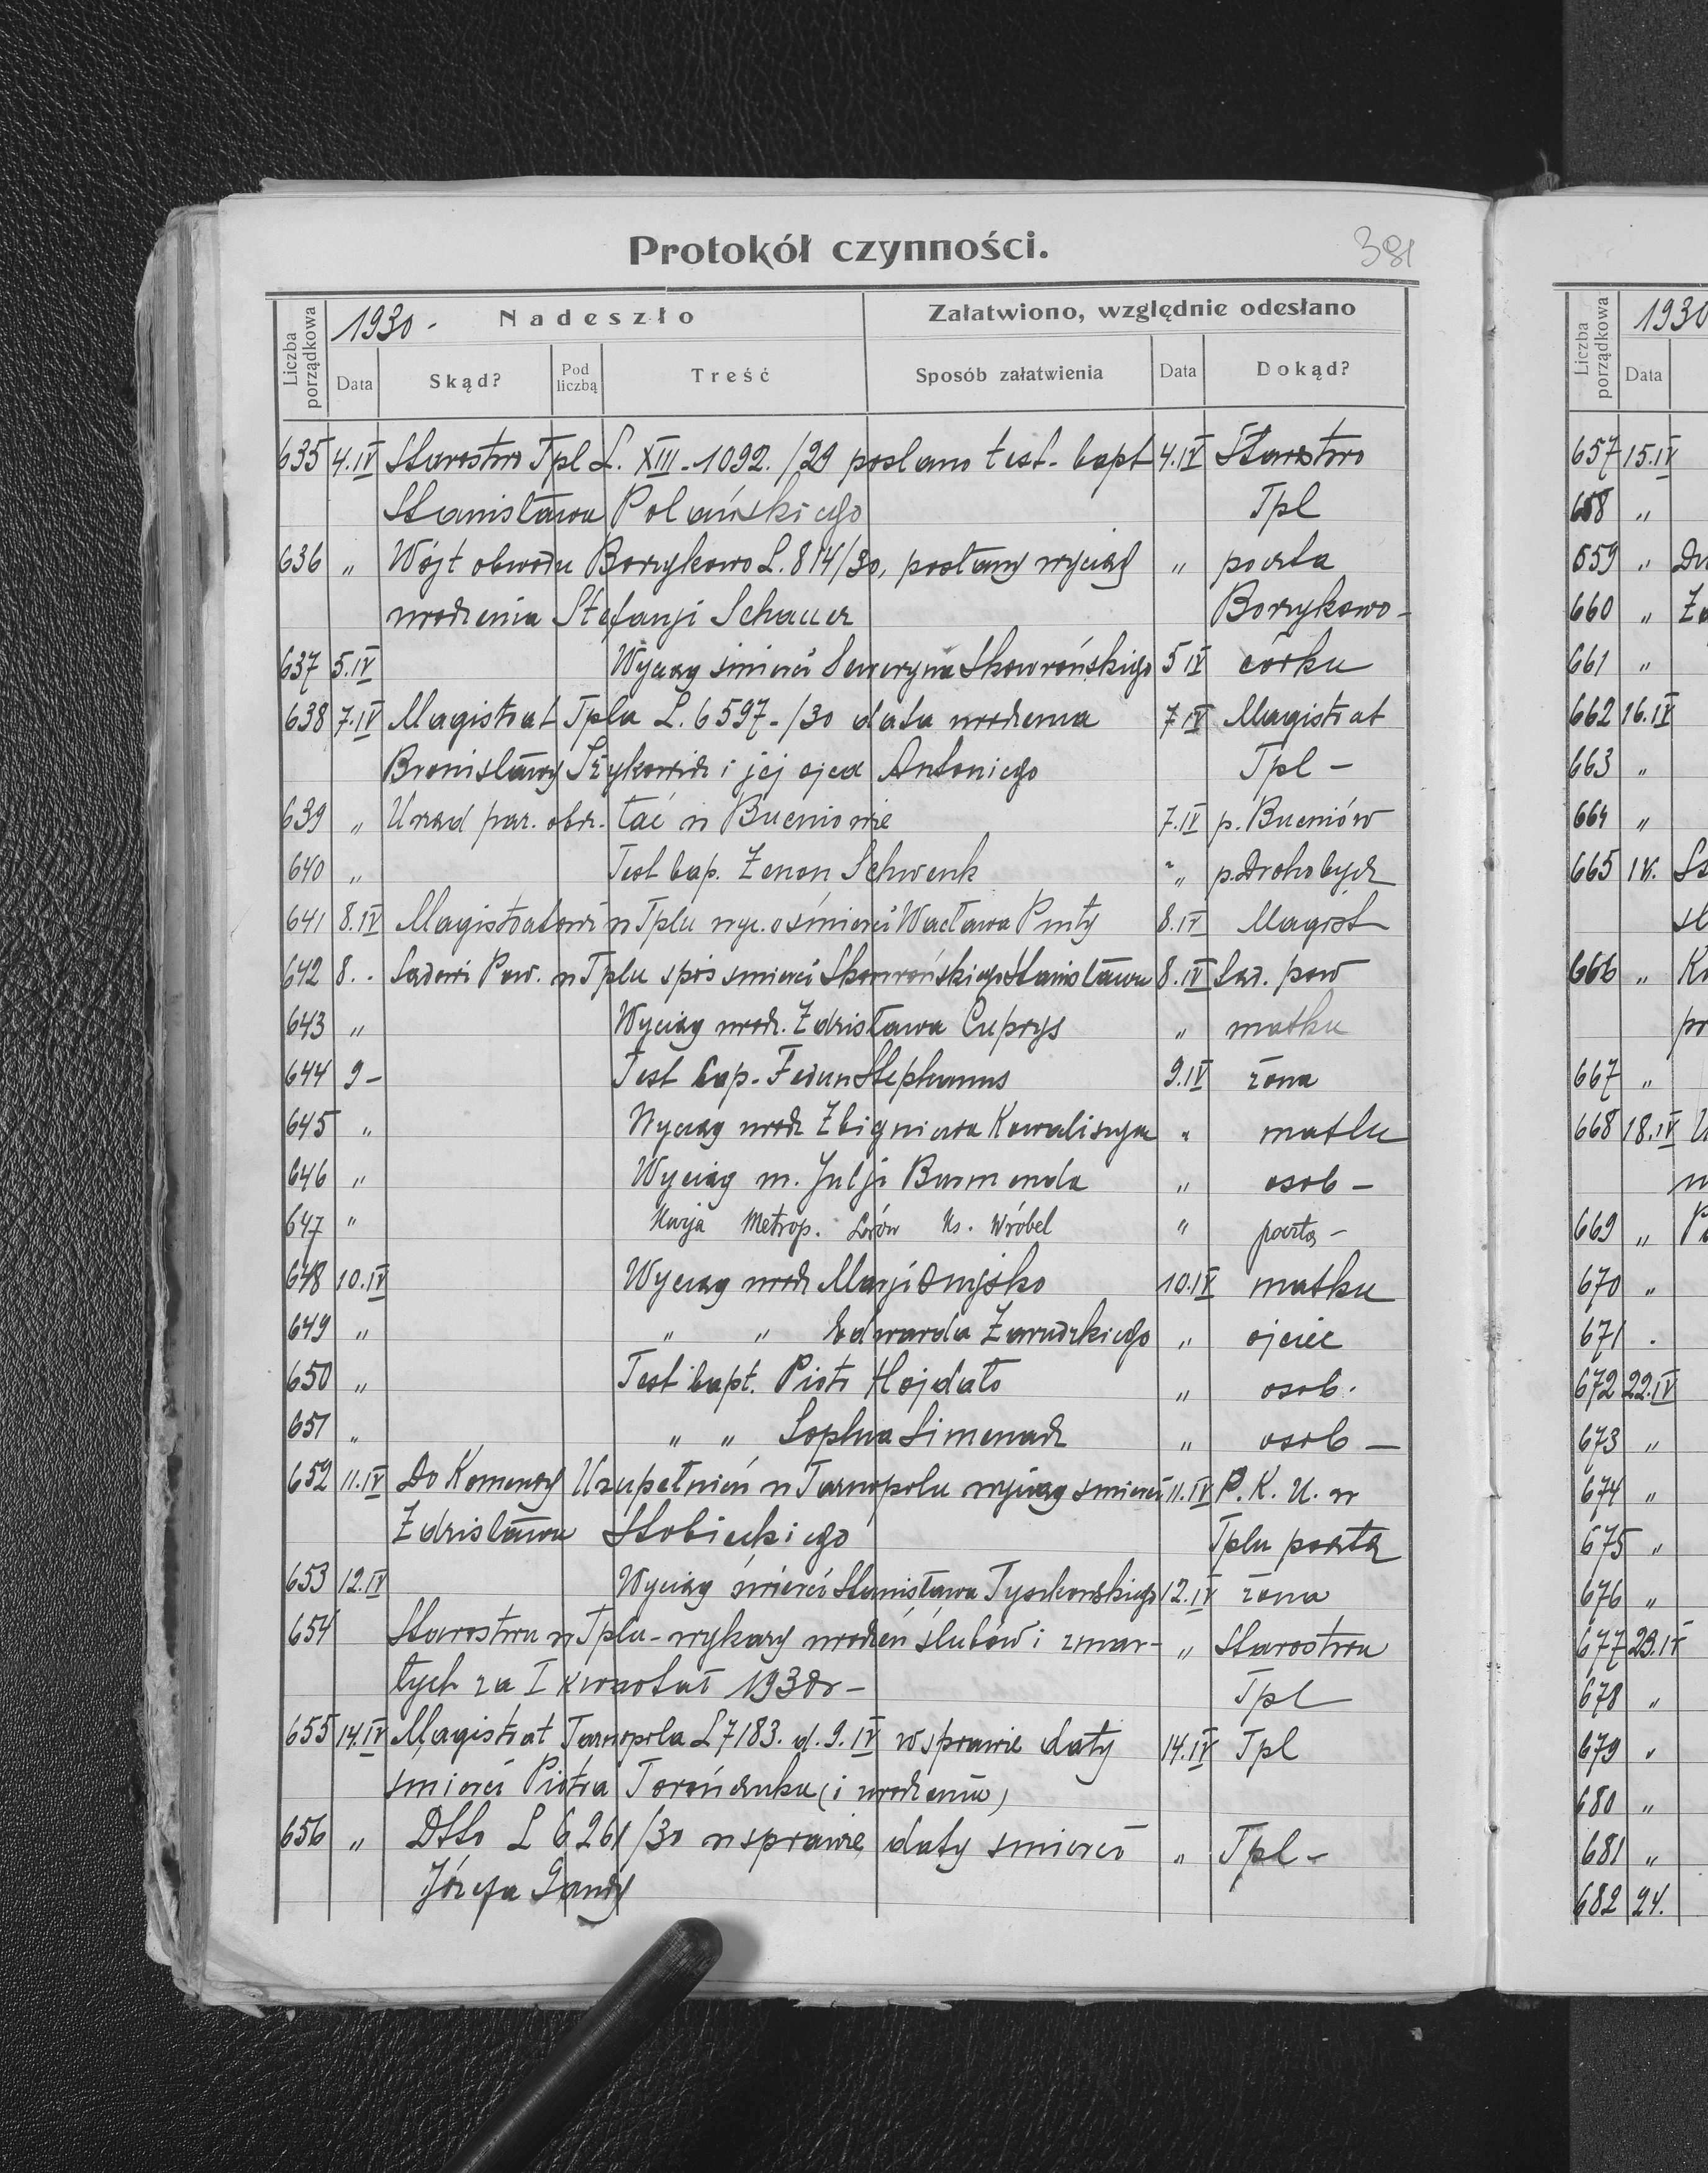 Protokół czynności.
381
Liczba porządkowa
1930 - Nadeszło
Załatwiono, względnie odesłano
Data Skąd? Pod liczbą Treść Sposób załatwienia Data Dokąd?
635 4.IV Starostwo Tpl L. XIII-1092./29 posłano test. bapt 4.IV Starostwo
Stanisława Polańskiego Tpl
636 " Wójt obwodu Borzykowo L. 814/30, posłany wyciąg " poczta
urodzenia Stefanji Schauer Borzykowo-
637 5.IV Wyciąg śmierci Seweryna Skowrońskiego 5 IV córka
638 7.IV Magistrat Tpla L. 6597-/30 data urodzenia 7 IV Magistrat
Bronisławy i jej ojca Antoniego Tpl -
639 " Urząd par. obr. łać w Bucniowie 7.IV p. Bucniów
640 " Test bap. Zenon Schwenk " p. Drohobycz
641 8.IV Magistratowi w Tplu wyc. o śmierci Wacława 8.IV Magist
642 8. Sądowi Pow. w Tplu spis śmierci Skowrońskiego Stanisława 8.IV Sąd. pow
643 " Wyciąg urodz. Zdzisława Cuprys " matka
644 9- Test bap. Stephanus 9.IV żona
645 " Wyciąg urodz Zbigniewa " matka
646 " Wyciąg m. Julji " osob -
647 " Kurja Metrop. Lwów Ks. Wróbel " poczta -
648 10.IV Wyciąg urodz Marji 10.IV matka
649 " " " Edwarda Zarudzkiego " ojciec
650 " Test bapt. Piotr Hojdało " osob.
651 " " " Sophia " osob -
652 11.IV Do Komendy Uzupełnień w Tarnopolu wyciąg śmierci 11.IV P. K. U. w
Zdzisława Słobieckiego Tplu poczta
653 12.IV Wyciąg śmierci Stanisława Tyszkowskiego 12.IV żona
654 Starostwu w Tplu - wykazy urodzeń ślubów i zmar- " Starostwu
łych za I kwartał 1930r - Tpl
655 14.IV Magistrat Tarnopola L 7183. d. 9. IV w sprawie daty 14.IV Tpl
śmierci Piotra Torończuka (i urodzenia)
656 " Dtto L 6261/30 w sprawie daty śmierci " Tpl -
Józefa
Liczba porządkowa
1930
Data
657 15.IV
658 "
659 "
660 "
661 "
662 16.IV
663 "
664 "
665 IV.
666 "
667 "
668 18.IV
669 "
670 "
671 .
672 22.IV
673 "
674 "
675 "
676 "
677 23.IV
678 "
679 "
680 "
681 "
682 24.